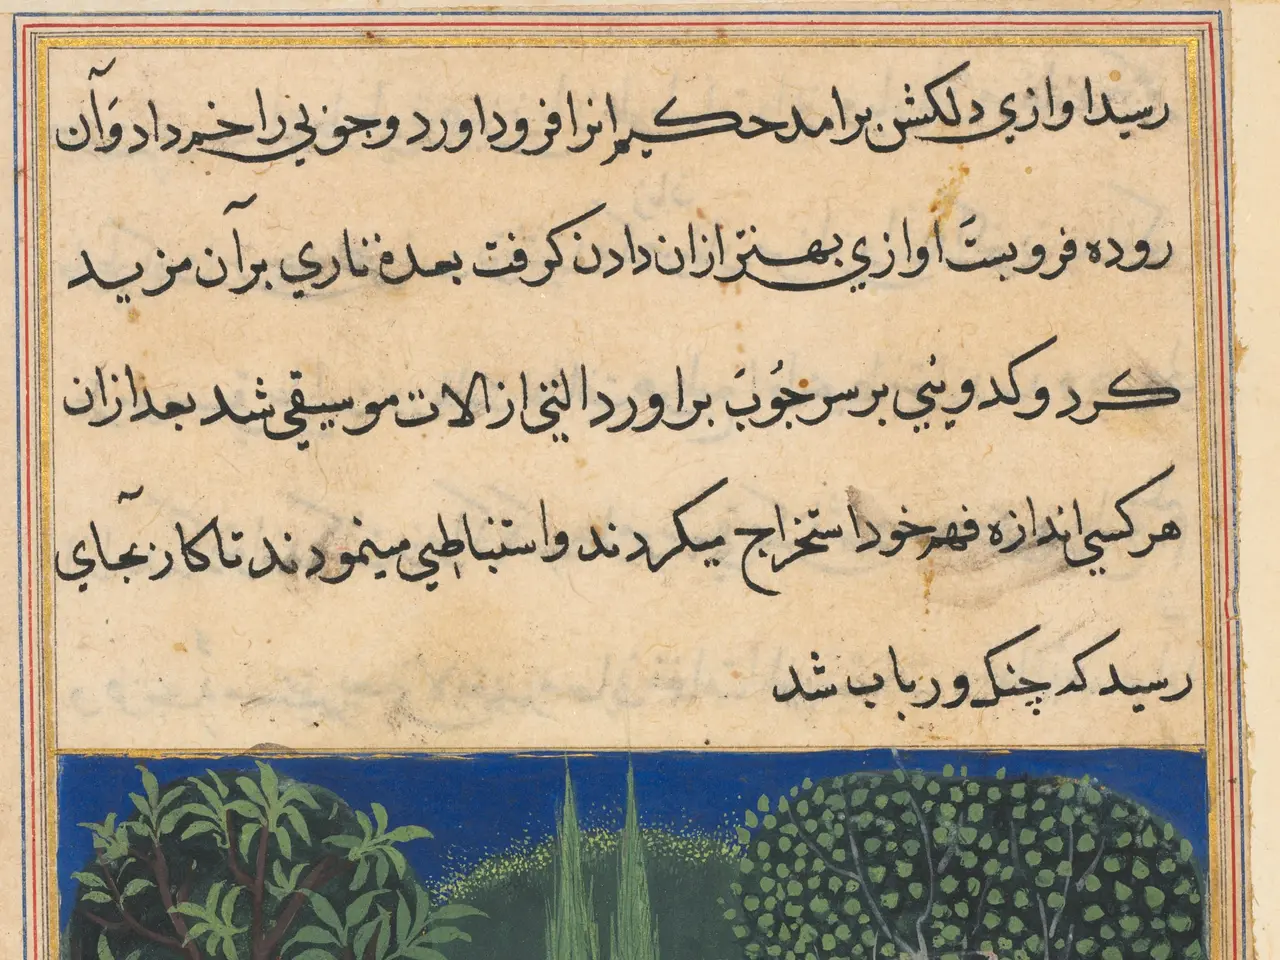 رسید اوازي دلکش برامد حکیم انرا فرود اورد و جوبي را خم داد وَآن
روده فرو بستَ اوازي بهتر ازان دادن کرفت بعده تاري برآن مزید
کرد و کدویئي بر سر جُوبَ براورد التي از الات موسیقي شد بعد ازان
هر کسي اندازه فهم خود استخراج میکردند و استنباطي مینمودند تا کار بجآي
رسید که چنک و رباب شد